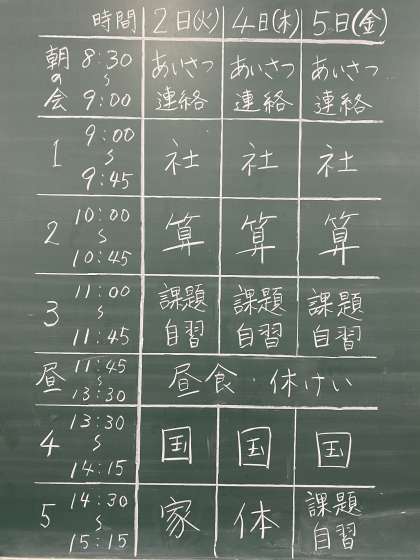 時間 2日(火) 4日(木) 5日(金)
朝の会 8:30〜9:00 あいさつ 連絡 あいさつ 連絡 あいさつ 連絡
1 9:00〜9:45 社 社 社
2 10:00〜10:45 算 算 算
3 11:00〜11:45 課題 自習 課題 自習 課題 自習
昼 11:45〜13:30 昼食・休けい
4 13:30〜14:15 国 国 国
5 14:30〜15:15 家 体 課題 自習